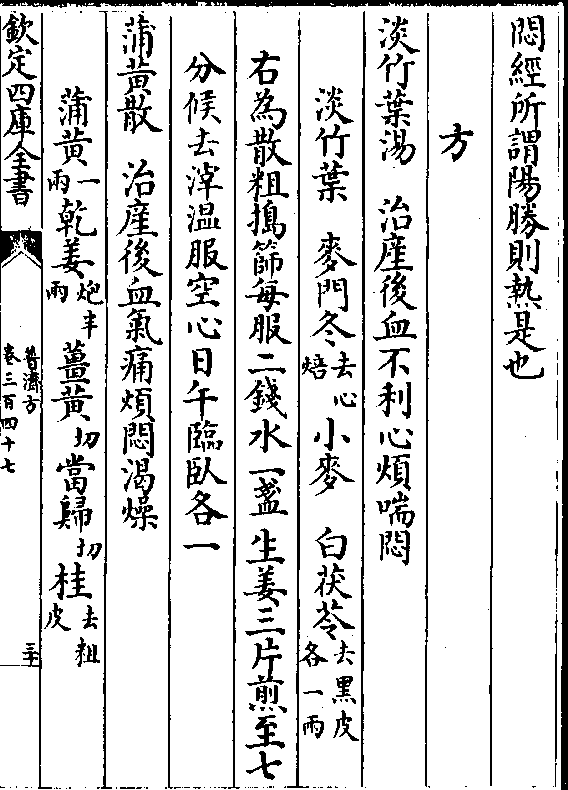 悶經所謂陽勝則熱是也
方
淡竹葉湯　治產後血不利心煩喘悶
淡竹葉　麥門冬去心焙　小麥　白茯苓去黑皮各一兩
右為散粗搗篩每服二錢水一盞生姜三片煎至七
分候去滓溫服空心日午臨臥各一
蒲黃散　治產後血氣痛煩悶渴燥
蒲黃一兩　乾姜炮半兩　薑黃切　當歸切　桂去粗皮
欽定四庫全書
普濟方
卷三百四十七
三十